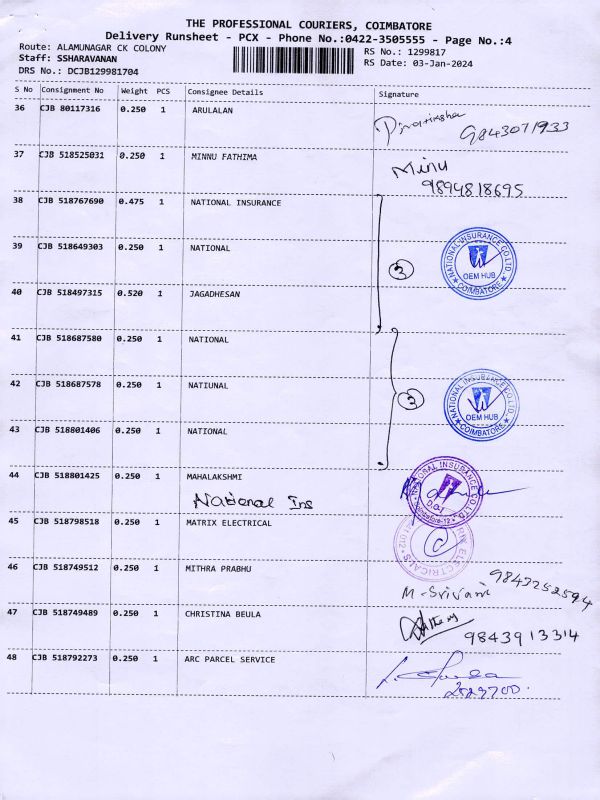 THE PROFESSIONAL COURIERS, COIMBATORE
Delivery Runsheet - PCX - Phone No.:0422-3505555 - Page No.:4
Route: ALAMUNAGAR CK COLONY
RS No.: 1299817
Staff: SSHARAVANAN
RS Date: 03-Jan-2024
DRS No.: DCJB129981704
S No Consignment No Weight PCS Consignee Details Signature
36 CJB 80117316 0.250 1 ARULALAN
9843071933
37 CJB 518525031 0.250 1 MINNU FATHIMA Minu
9894818695
38 CJB 518767690 0.475 1 NATIONAL INSURANCE
39 CJB 518649303 0.250 1 NATIONAL
3
NATIONAL INSURANCE CO LTD. OEM HUB COIMBATORE
40 CJB 518497315 0.520 1 JAGADHESAN
41 CJB 518687580 0.250 1 NATIONAL
42 CJB 518687578 0.250 1 NATIUNAL
3
NATIONAL INSURANCE CO LTD. OEM HUB COIMBATORE
43 CJB 518801406 0.250 1 NATIONAL
44 CJB 518801425 0.250 1 MAHALAKSHMI
National Ins
NATIONAL INSURANCE CO LTD
45 CJB 518798518 0.250 1 MATRIX ELECTRICAL
ELECTRICALS
46 CJB 518749512 0.250 1 MITHRA PRABHU
M-Srivani 9843252594
47 CJB 518749489 0.250 1 CHRISTINA BEULA
9843913314
48 CJB 518792273 0.250 1 ARC PARCEL SERVICE